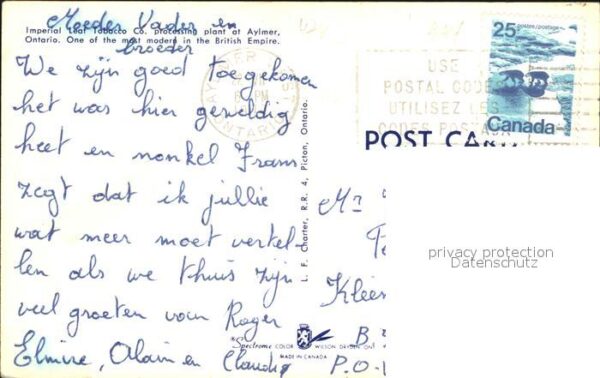 Moeder Vader en
broeder
Imperial Leaf Tobacco Co. processing plant at Aylmer,
Ontario. One of the most modern in the British Empire.
We zijn goed toegekomen
het was hier geweldig
heet en nonkel Frans
zegt dat ik jullie
wat meer moet vertel-
len als we thuis zijn
veel groeten van Roger
Elmire, Alain en Claudy
L. F. Charter, R.R. 4, Picton, Ontario.
Spectrome COLOR
WILSON DRYDEN ONT
MADE IN CANADA
AYLMER WEST
PM
ONTARIO
USE
POSTAL CODE
UTILISEZ LES
CODES POSTAUX
25
postes/postage
Canada
POST CAR
Mr
Klee
B
P.O.
privacy protection
Datenschutz